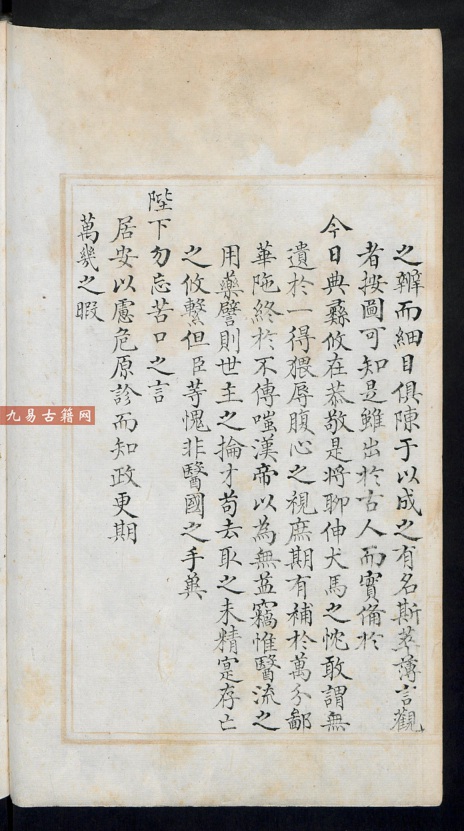 之辧而細目俱陳于以成之有名斯萃薄言觀
者按圖可知是雖出於古人而實俻於
今日典彞攸在恭敬是將聊伸犬馬之忱敢謂無
遺於一得猥辱腹心之視庶期有補於萬分鄙
華陁終於不傳嗤漢帝以為無益竊惟醫流之
用藥譬則世主之掄才苟去取之未精寔存亡
之攸繫但臣等愧非醫國之手兾
陛下勿忘苦口之言
居安以慮危原診而知政更期
萬幾之暇
九易古籍网